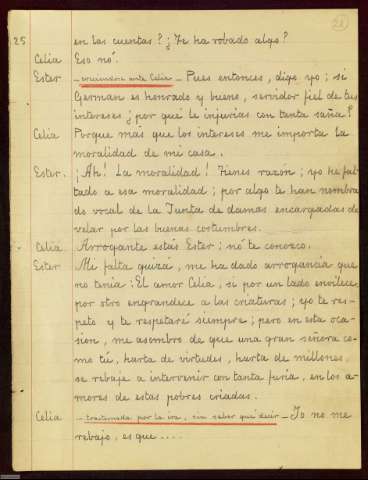 25
en las cuentas? ¿Te ha robado algo?
Celia Eso nó.
Ester — creciendose ante Celia — Pues entonces, digo yo; si
German es honrado y bueno, servidor fiel de tus
intereses ¿por que le injurias con tanta saña?
Celia Porque más que los intereses me importa la
moralidad de mi casa.
Ester. ¡Ah! La moralidad! Tienes razón; yo he fal-
tado a esa moralidad; por algo te han nombrado
de vocal de la Junta de damas encargadas de
velar por las buenas costumbres.
Celia Arrogante estás Ester; nó te conozco.
Ester Mi falta quizá, me ha dado arrogancia que
no tenia: El amor Celia, si por un lado envilece
por otro engrandece a las criaturas; yo te res-
peto y te respetaré siempre; pero en esta oca-
sion, me asombro de que una gran señora co-
mo tú, harta de virtudes, harta de millones,
se rebaje a intervenir con tanta furia, en los a-
mores de estas pobres criadas.
Celia — trastornada por la ira, sin saber qué decir — Yo no me
rebajo, es que ....